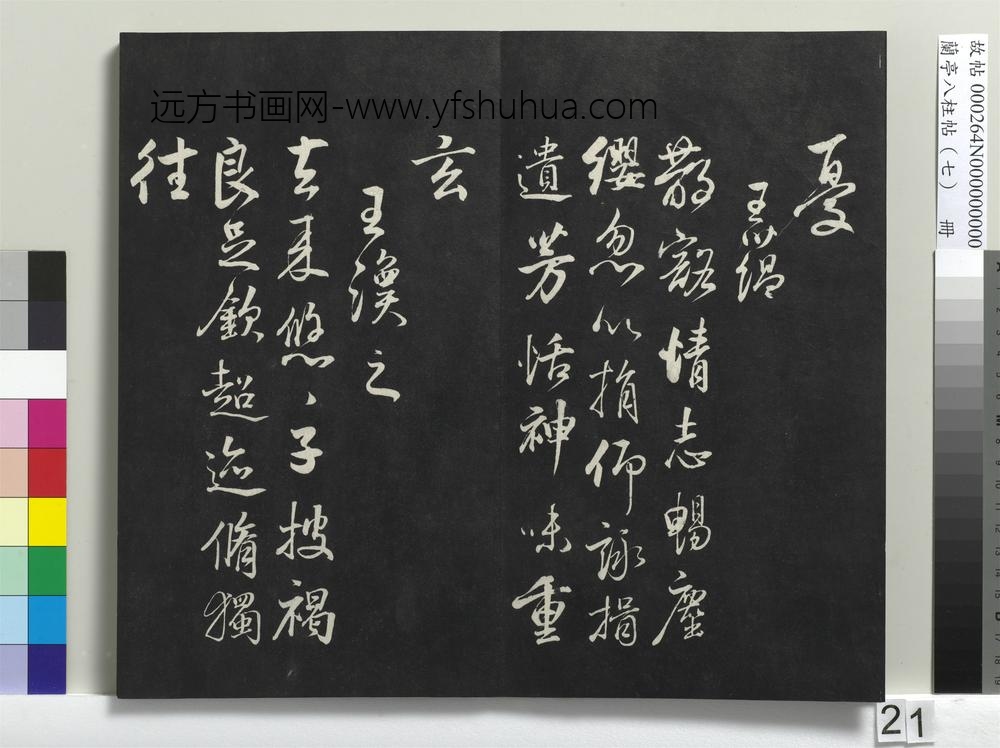 远方书画网-www.yfshuhua.com
故帖 000264N000000000
蘭亭八柱帖（七） 冊
憂
王蘊
散豁情志暢塵
纓忽以捐仰詠揖
遺芳恬神味重
玄
王渙之
去来悠〻子披褐
良足欽超迹脩獨
往
21